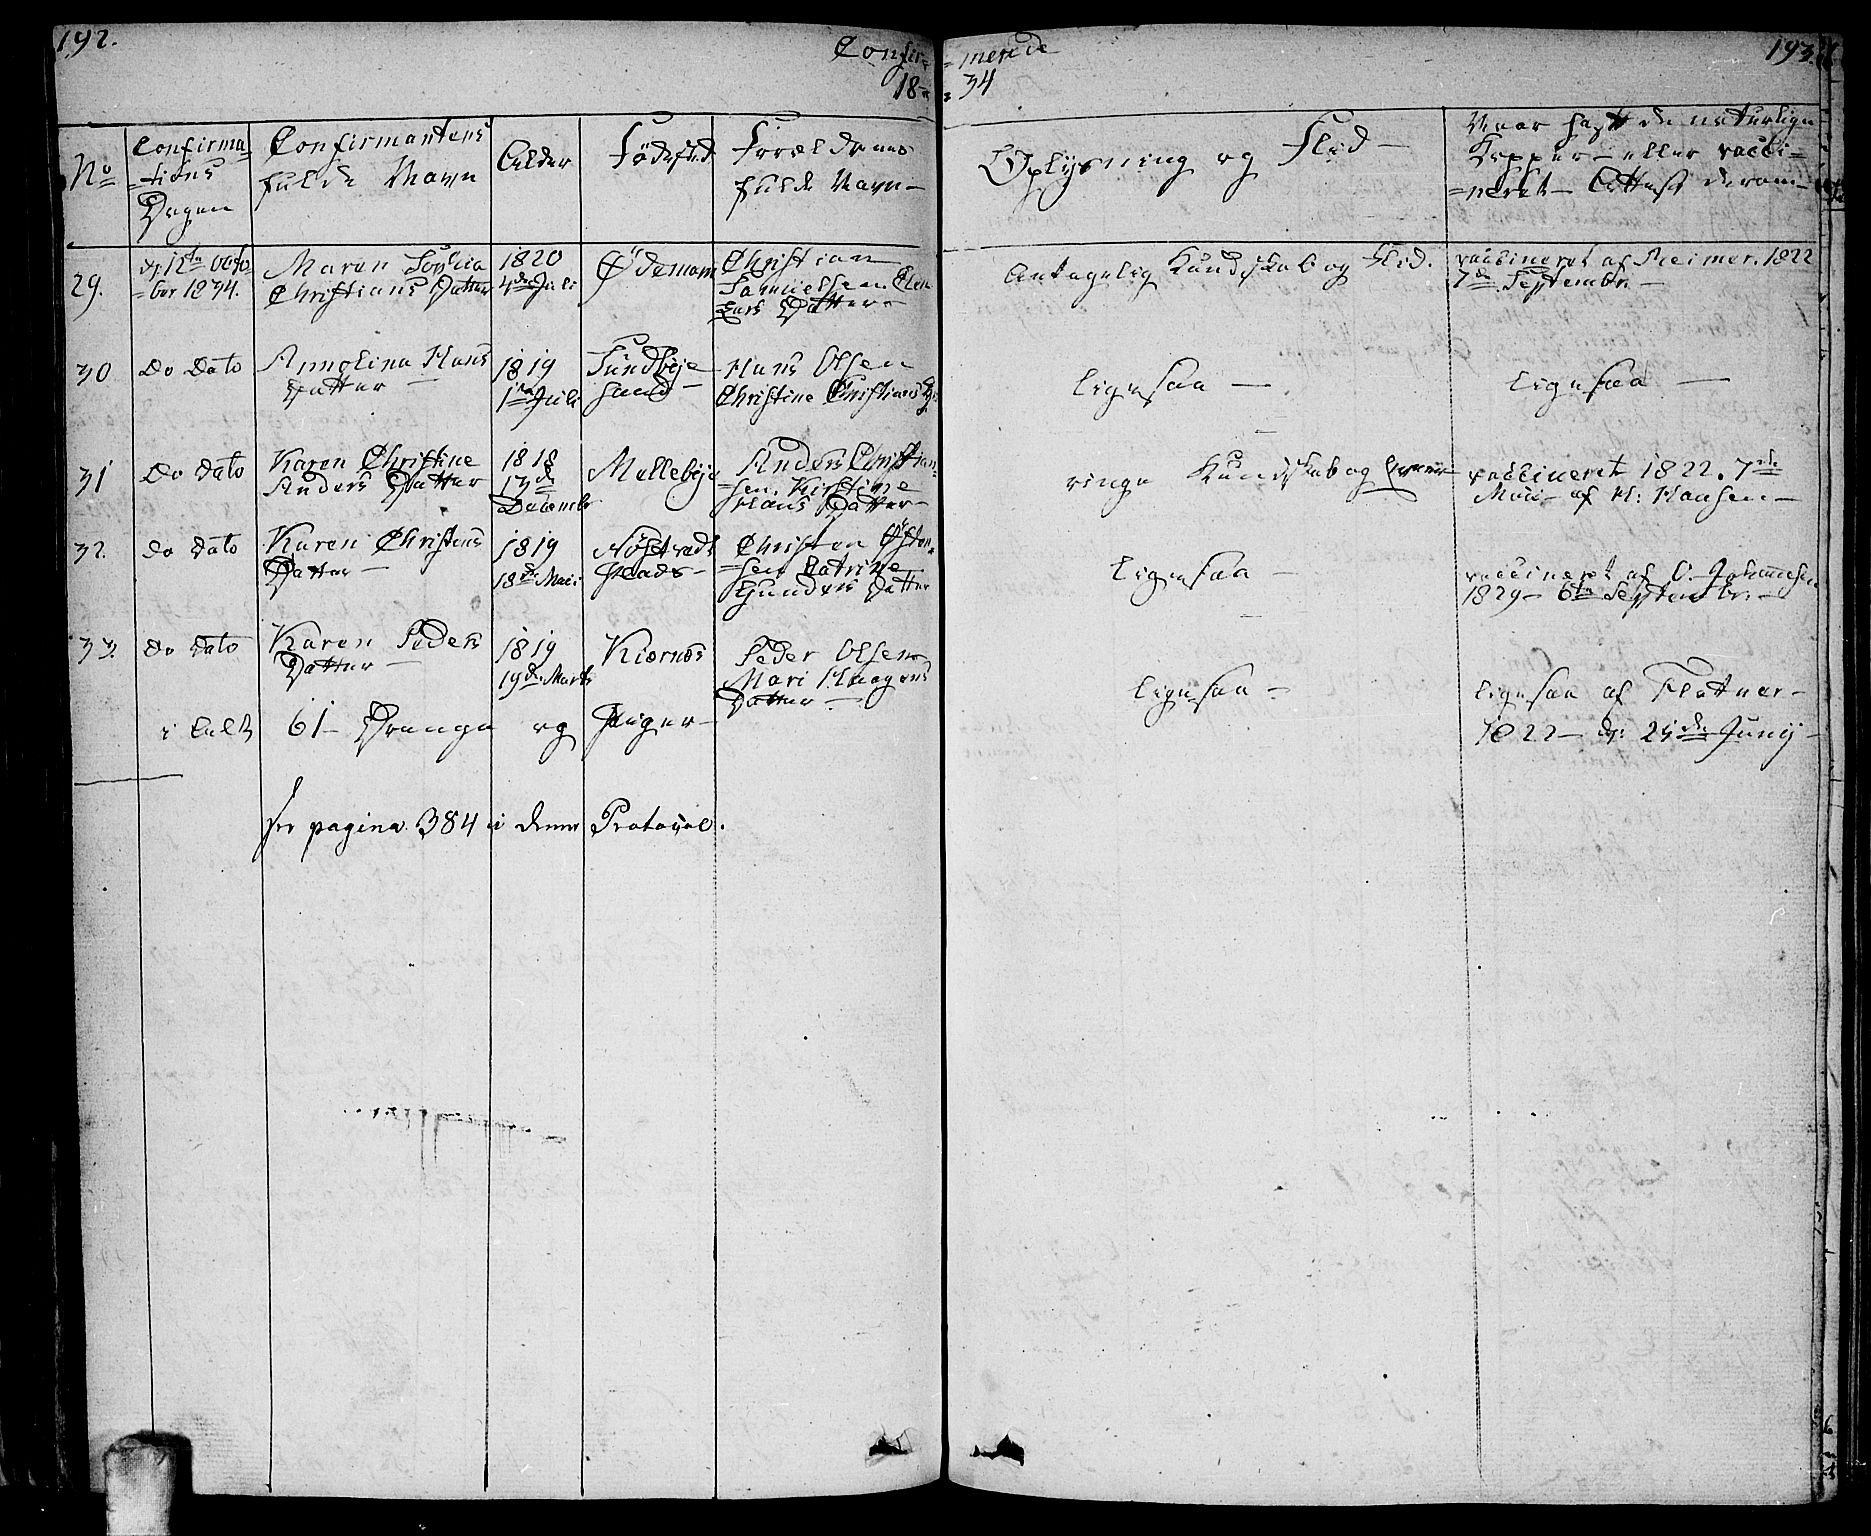 192.
Confir=
=merede
193.
18=
=34
No
Confirma=
=tions
Dagen
Confirmantens
fulde Navn
Alder
Födested
Forældrenes
fulde Navn—
Oplysning og Flid—
Hvor havt de naturlige
Kopper— eller vacci=
=neret— Attest derom—
29.
d. 12te Octo=
=ber 1834.
Maren Sophia
Christians Datter
1820
4de Juli
Ödemam
Christian
Samuelsen Elen
Lars Datter—
Antagelig Kundskab og Flid.
vaccineret af Reimer. 1822
7de Septembr—
30
Do Dato
Annolina Hans
Datter—
1819
1te Juli
Sundbye
sand—
Hans Olsen
Christine Christians D
ligesaa —
ligesaa —
31
Do Dato
Karen Christine
Anders Datter
1818
13de
Decembr
Mellebye
Anders Christian=
=sen. Kirstine
Hans Datter—
ringe Kundskab og
vaccineret 1822. 7de
Mai— af H: Hansen—
32.
do Dato
Karen Christens
Datter—
1819
18de Mai
Christen Østen=
=sen Catrine
Gunders Datter
ligesaa —
vaccineret af O. Johannesen
1829— 6te Septembr.—
33.
do Dato
Karen Peders
Datter—
1819
19de Marts
Kiernes
Peder Olsen
Mari Haagens
Datter—
ligesaa —
ligesaa af Flattner—
1822— d: 25de Junij—
i Alt 61— Drenge og Piger—
see pagina 384 i denne Protocol.